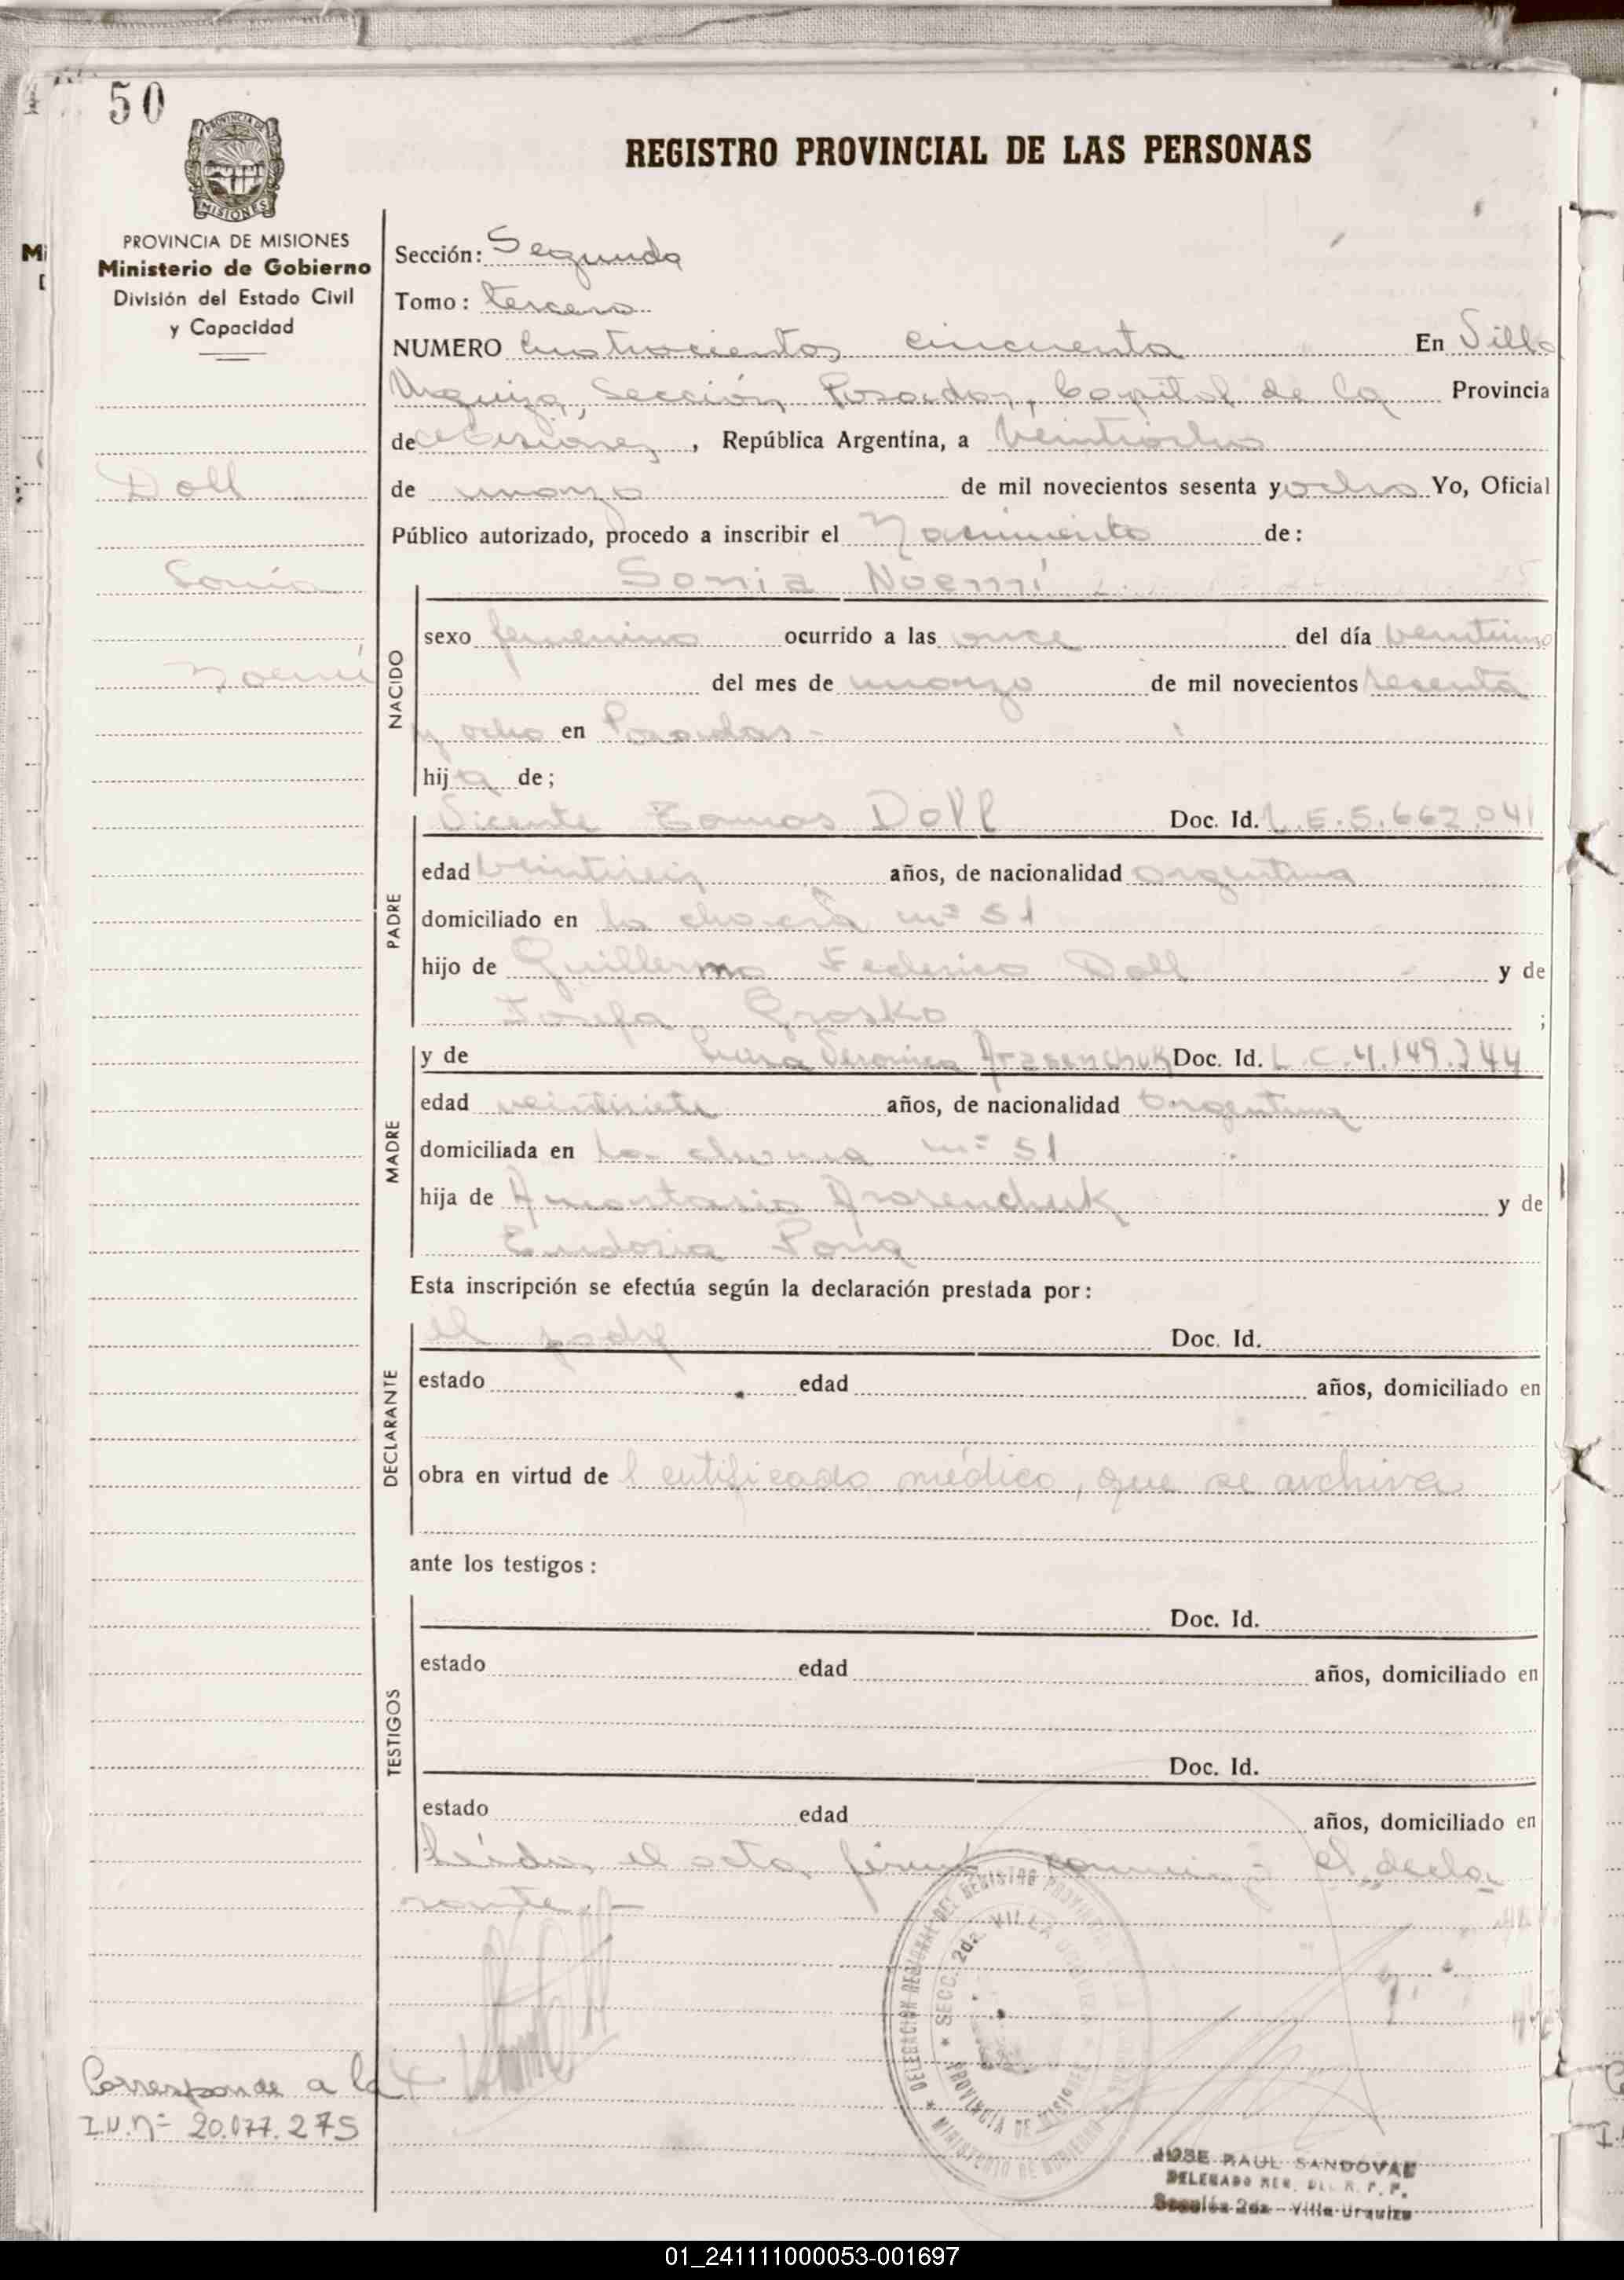 50
PROVINCIA DE MISIONES
REGISTRO PROVINCIAL DE LAS PERSONAS
PROVINCIA DE MISIONES
Ministerio de Gobierno
División del Estado Civil
y Capacidad
Doll
Sonia
Noemí
Sección: Segunda
Tomo: tercero
NUMERO Cuatrocientos cincuenta En Villa
Urquiza, Sección Posadas, Capital de la Provincia
de Misiones, República Argentina, a veintiocho
de marzo de mil novecientos sesenta y ocho Yo, Oficial
Público autorizado, procedo a inscribir el Nacimiento de:
Sonia Noemí
NACIDO
sexo femenino ocurrido a las once del día veintiuno
del mes de marzo de mil novecientos sesenta
y ocho en Posadas.-
hija de;
PADRE
Vicente Tomas Doll Doc. Id. L.E. 5.662.041
edad veintiseis años, de nacionalidad argentina
domiciliado en la chacra nº 51
hijo de Guillermo Federico Doll y de
Josefa Grosko ;
MADRE
y de Luisa Veronica Arasenchuk Doc. Id. L.C. 4.149.244
edad veintisiete años, de nacionalidad argentina
domiciliada en la chacra nº 51
hija de Anastasio Arasenchuk y de
Eudosia
Esta inscripción se efectúa según la declaración prestada por:
DECLARANTE
el padre Doc. Id.
estado edad años, domiciliado en
obra en virtud de Certificado médico, que se archiva
ante los testigos:
TESTIGOS
Doc. Id.
estado edad años, domiciliado en
Doc. Id.
estado edad años, domiciliado en
Leída el acta, firma conmigo el decla-
rante.-
DELEGACION REGIONAL DEL REGISTRO PROVINCIAL
SECC. 2da. VILLA URQUIZA
PROVINCIA DE MISIONES
MINISTERIO DE GOBIERNO
Corresponde a la
I.U.nº 20.077.275
JOSE RAUL SANDOVAL
DELEGADO REG. DEL R. P. P.
Sección 2da - Villa Urquiza
01_241111000053-001697